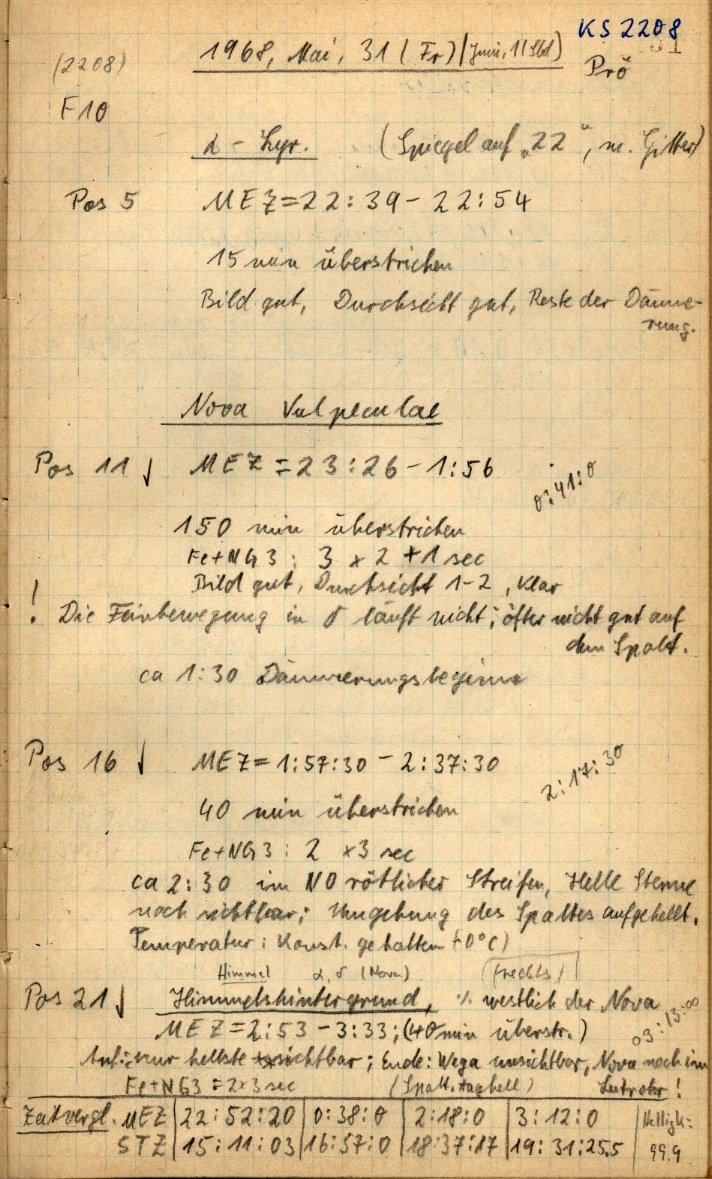 KS 2208
(2208) 1968, Mai, 31 (Fr) (Juni, 1 (Sbd) Prö
F10
α - Lyr. (Spiegel auf „22“, m. Gitter)
Pos 5 MEZ = 22:39 - 22:54
15 min überstrichen
Bild gut, Durchsicht gut, Reste der Dämme-
rung.
Nova Vulpeculae
Pos 11 ↓ MEZ = 23:26 - 1:56
0:41:0
150 min überstrichen
Fe+NG3 : 3 x 2 + 1 sec
Bild gut, Durchsicht 1-2, klar
! Die Feinbewegung in δ läuft nicht; öfter nicht gut auf
dem Spalt.
ca 1:30 Dämmerungsbeginn
Pos 16 ↓ MEZ = 1:57:30 - 2:37:30
2:17:30
40 min überstrichen
Fe+NG3 : 2 x 3 sec
ca 2:30 im NO rötlicher Streifen, Helle Sterne
noch sichtbar; Umgebung des Spaltes aufgehellt.
Temperatur: Konst. gehalten (0°C)
Himmel α, δ (Nova) (rechts)
Pos 21 ↓ Himmelshintergrund, westlich der Nova
MEZ = 2:53 - 3:33; (40 min überstr.)
03:13:00
Anf.: nur hellste sichtbar; Ende: Wega unsichtbar, Nova noch im
Fe+NG3 = 2x3 sec (Spalt. taghell) Leitrohr!
Zeitvergl. MEZ 22:52:20 0:38:0 2:18:0 3:12:0 Helligk:
STZ 15:11:03 16:57:0 18:37:17 19:31:25.5 99.9